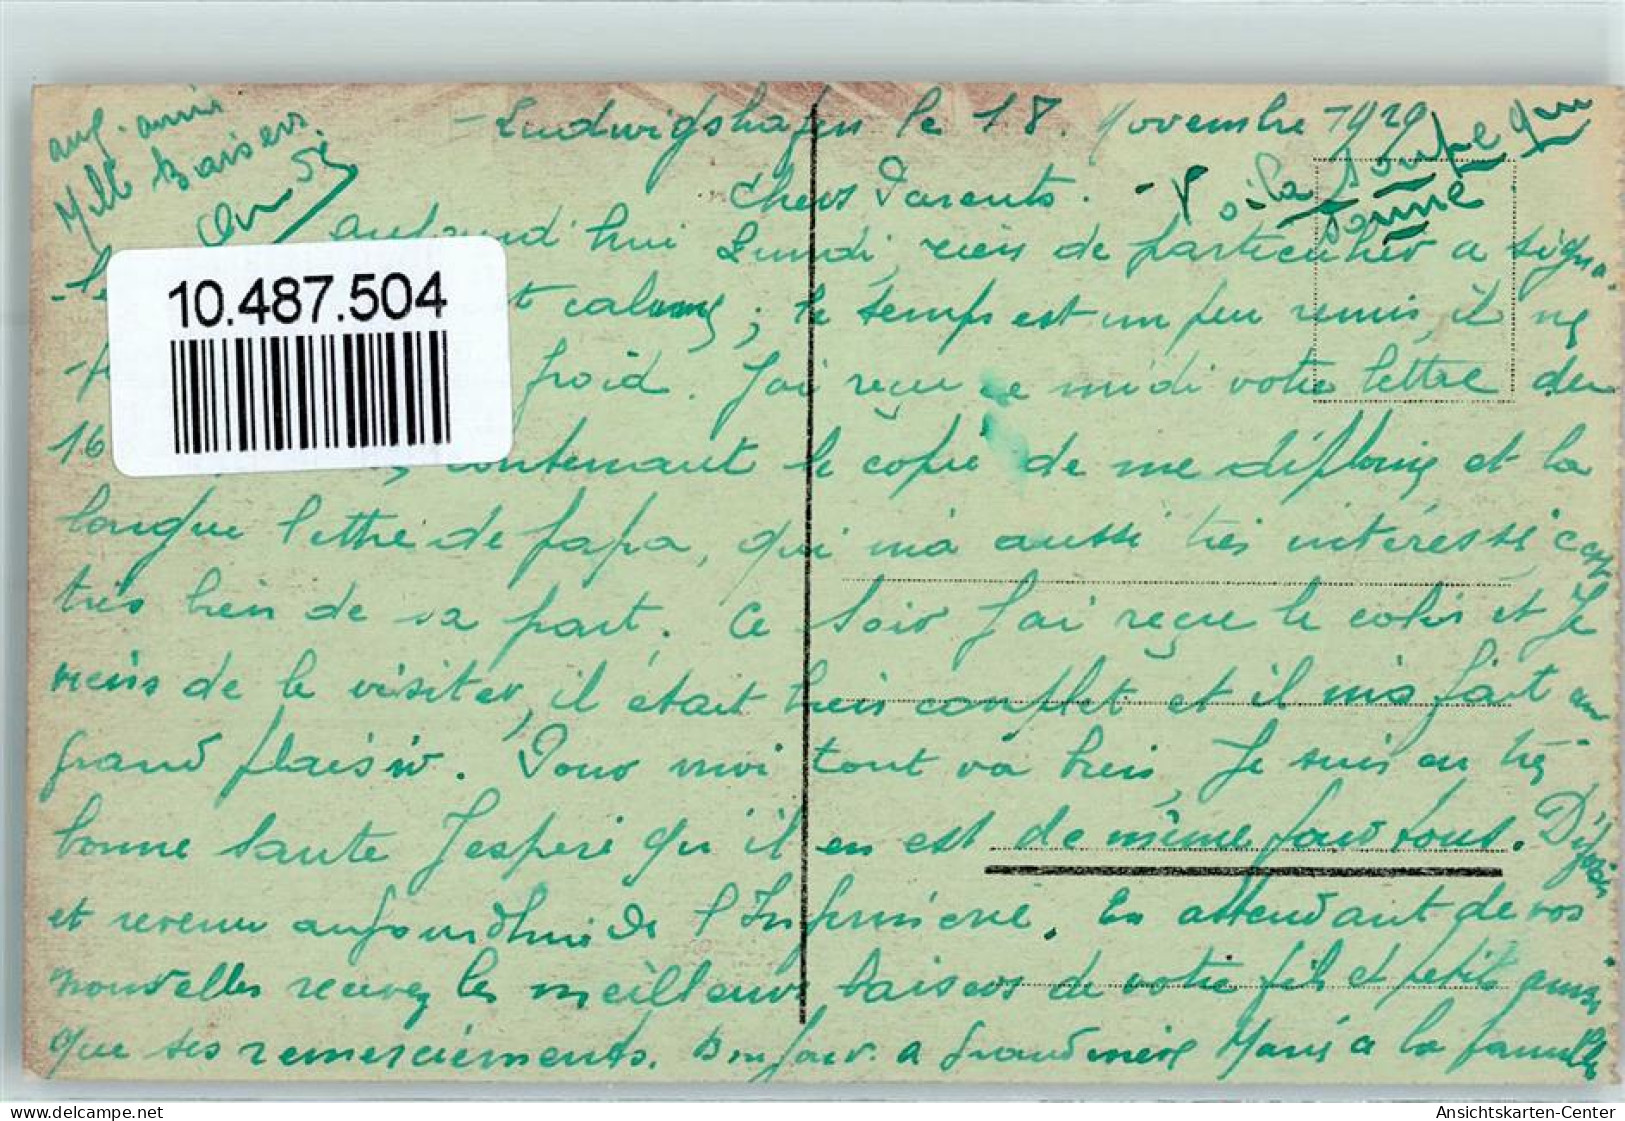 - Ludwigshafen le 18. Novembre 1929
Chers Parents. - Voila la soupe qui
sonne
aujourd'hui Lundi, rien de particulier a signa-
-le t calme; le temps est un peu remis, il ne
froid. J'ai reçu ce midi votre lettre du
16 contenant le copie de me diplome et la
longue lettre de papa, qui m'a aussi très intéressé car
très bien de sa part. Ce soir J'ai reçue le colis et Je
viens de le visiter, il était bien complet et il m'a fait un
grand plaisir. Pour moi tout va bien, Je suis en très
bonne santé J'espere qu'il en est de même pour tous. Dijoin
et revenu aujourdhui de l'Infirmerie. En attendant de vos
nouvelles recevez les meilleurs baisers de votre fils et petit ainsi
que ses remerciements. Bonjour a grandmère Marie a la famille
aux amis
Mille Baisers.
10.487.504
Ansichtskarten-Center